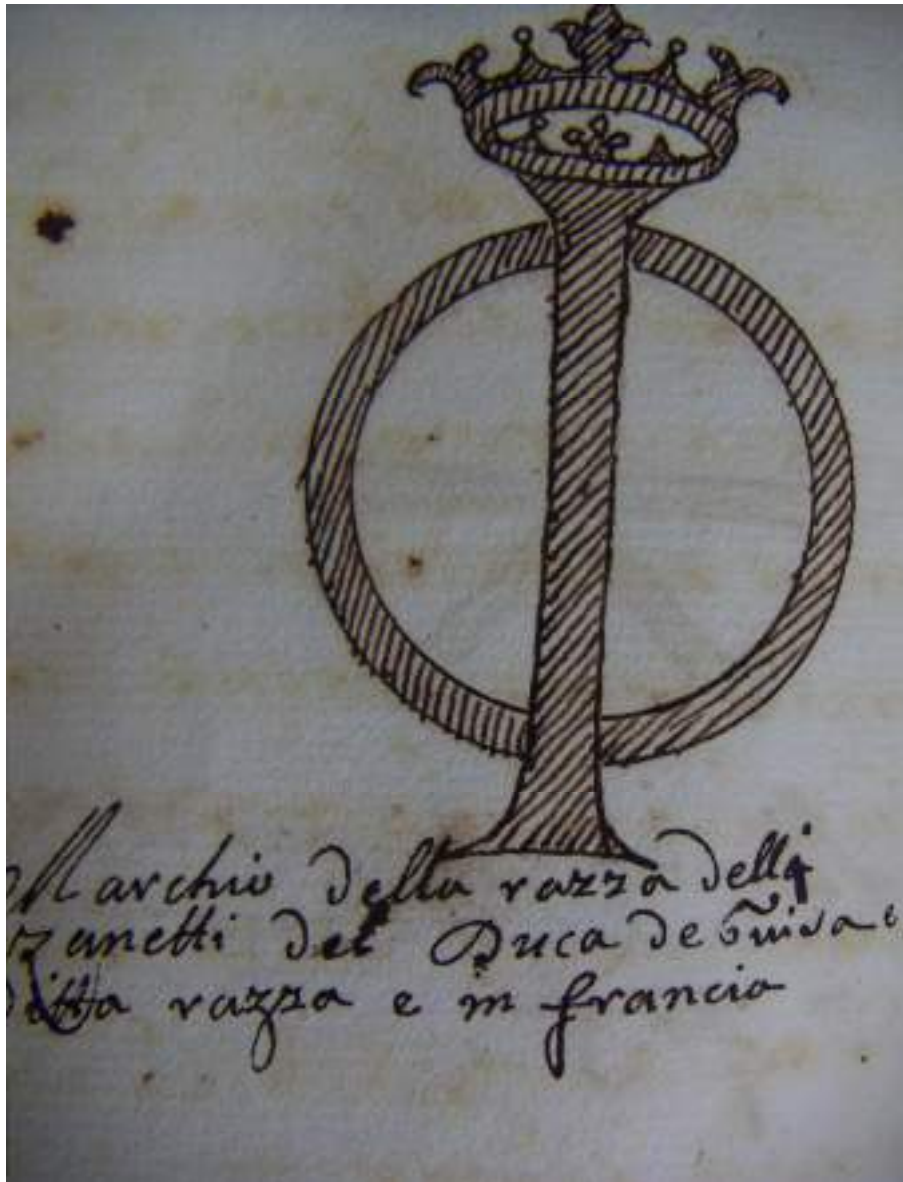 Marchio della razza delli
zanetti del Duca de Guisa e
ditta razza e in francia